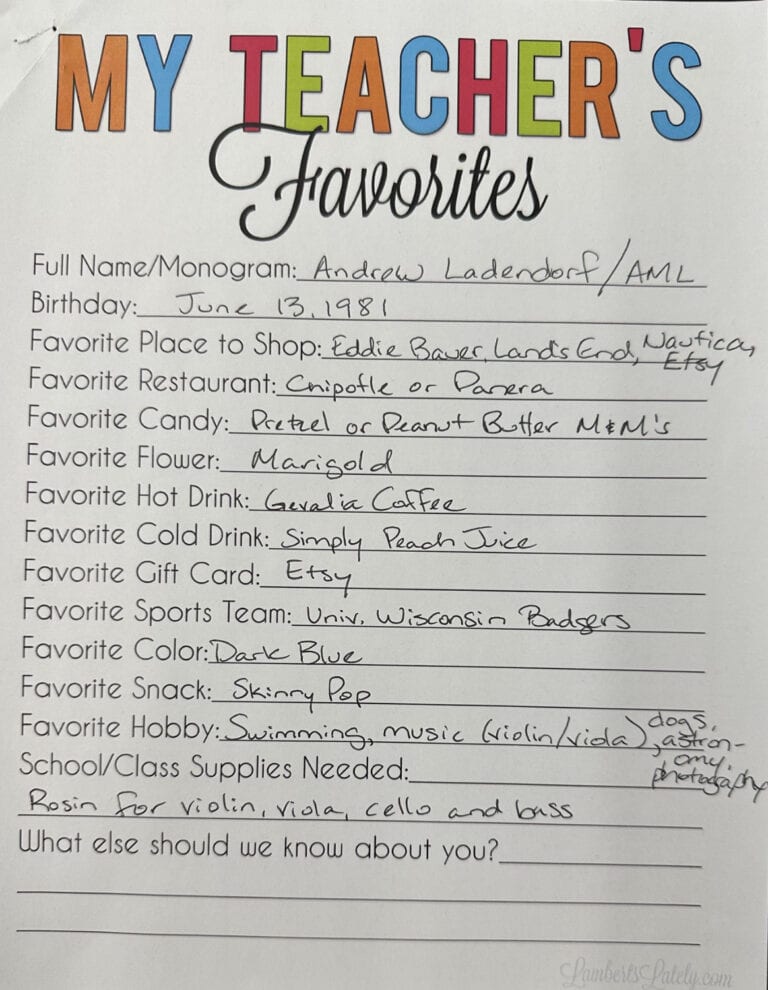 MY TEACHER'S
Favorites
Full Name/Monogram: Andrew Ladendorf/AML
Birthday: June 13, 1981
Favorite Place to Shop: Eddie Bauer, Land's End, Nautica, Etsy
Favorite Restaurant: Chipotle or Panera
Favorite Candy: Pretzel or Peanut Butter M&M's
Favorite Flower: Marigold
Favorite Hot Drink: Gevalia Coffee
Favorite Cold Drink: Simply Peach Juice
Favorite Gift Card: Etsy
Favorite Sports Team: Univ. Wisconsin Badgers
Favorite Color: Dark Blue
Favorite Snack: Skinny Pop
Favorite Hobby: Swimming, music (violin/viola), dogs, astron-
omy, photography
School/Class Supplies Needed:
Rosin for violin, viola, cello and bass
What else should we know about you?
LambertsLately.com